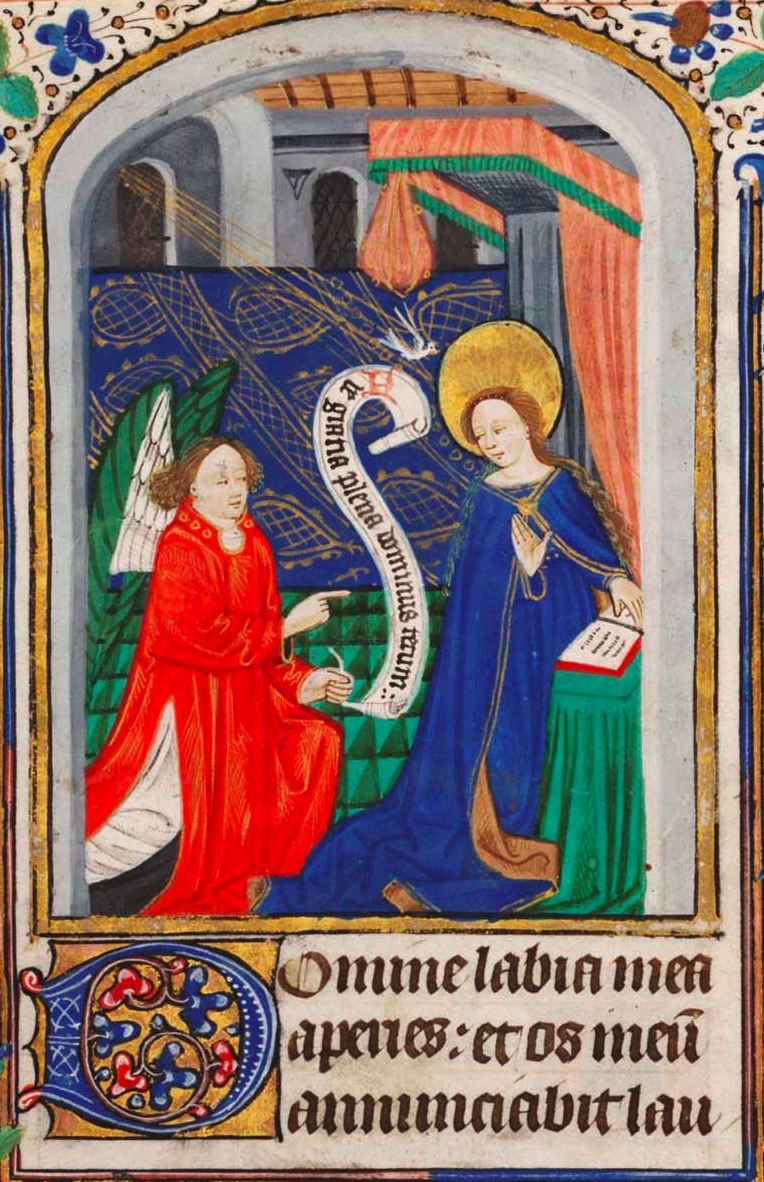 Aue gratia plena dominus tecum:
DOmine labia mea
aperies: et os meū
annunciabit lau